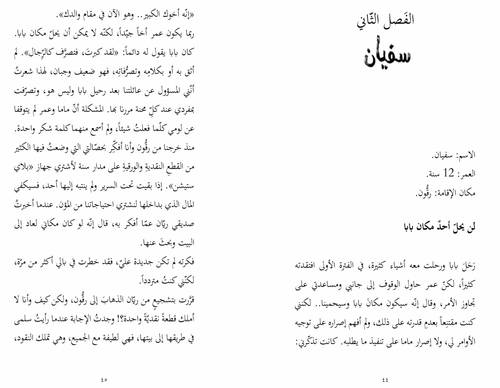 الفَصل الثّاني
سفيان
الاسم: سفيان.
العمر: 12 سنة.
مكان الإقامة: رفُّون.
لن يحلّ أحدٌ مكان بابا
رَحَلَ بابا ورحلت معه أشياء كثيرة، في الفترة الأولى افتقدته
كثيراً، لكنَّ عمر حاول الوقوف إلى جانبي ومساعدتي على
تجاوز الأمر، وقال إنَّه سيكون مكانَ بابا وسيحمينا.. لكنني
كنت مقتنعاً بعدم قدرته على ذلك، ولم أفهم إصراره على توجيه
الأوامر لي، ولا إصرار ماما على تنفيذ ما يطلبه. كانت تذكّرني:
11
«إنّه أخوك الكبير.. وهو الآن في مقام والدك».
ربما يكون عمر أخاً جيّداً، لكنّه لا يمكن أن يحلّ مكان بابا.
كان بابا يقول له دائماً: «لقد كبرتَ، فتصرَّف كالرِّجال». لم
أثق به أو بكلامِه وتصرُّفاتِه، فهو ضعيف وجبان، لهذا شعرتُ
أنَّني المسؤول عن عائلتنا بعد رحيل بابا وليس هو، وتصرّفت
بمفردي عند كلّ محنة مررنا بها. المشكلة أنَّ ماما وعمر لم يتوقفا
عن لومي كلّما فعلتُ شيئاً، ولم أسمع منهما كلمة شكر واحدة.
منذ خرجنا من رفُّون وأنا أفكّر بحصّالتي التي وضعتُ فيها الكثير
من القطع النقدية والورقية على مدار سنة لأشتري جهاز «بلاي
ستيشن». إذا بقيت تحت السرير ولم ينتبه إليها أحد، فسيكفي
المال الذي بداخلها لنشتري احتياجاتنا من المؤن. عندما أخبرتُ
صديقي ريّان عمّا أفكر به، قال إنَّه لو كان مكاني لعاد إلى
البيت وبحثَ عنها.
فكرته لم تكن جديدة عليّ، فقد خطرت في بالي أكثر من مرّة،
لكنَّني كنتُ متردداً.
قرّرت بتشجيعٍ من ريّان الذهابَ إلى رفُّون، ولكن كيف وأنا لا
أملك قطعةً نقديّةً واحدة؟! وجدتُ الإجابة عندما رأيتُ سلمى
في طريقها إلى بيتها، فهي لطيفة مع الجميع، وهي تملك النقود،